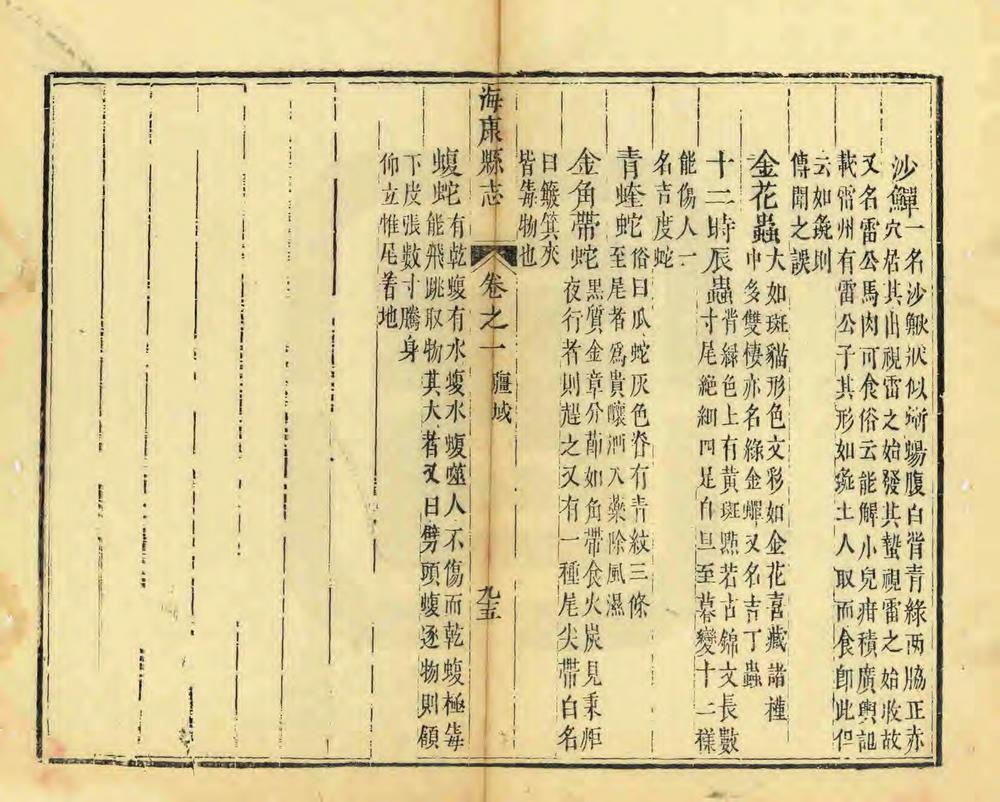 沙鱓一名沙鰍狀似蜥蜴腹白背青綠两脇正赤
穴居其出視雷之始發其蟄視雷之始收故
又名雷公馬肉可食俗云能解小兒疳積廣輿記
載雷州有雷公子其形如彘土人取而食即此但
云如彘則
傳聞之誤
金花蟲大如斑貓形色文彩如金花喜藏諸種
中多雙棲亦名綠金蟬又名吉丁蟲
十二時辰蟲背綠色上有黃斑點若古錦文長數
寸尾絶細四足自旦至暮變十二樣
能傷人一
名吉度蛇
青蝰蛇俗曰瓜蛇灰色脊有青紋三條
至尾者爲貴釀酒入藥除風濕
金角帶蛇黑質金章分節如角帶食火炭見秉炬
夜行者則趕之又有一種尾尖帶白名
曰簸箕夾
皆毒物也
海康縣志 卷之一 疆域 九五
蝮蛇有乾蝮有水蝮水蝮噬人不傷而乾蝮極毒
能飛跳取物其大者又曰劈頭蝮逐物則頷
下皮張數寸騰身
仰立惟尾着地